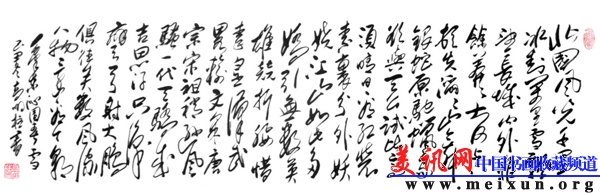 北国风光千里
冰封万里雪飘
望长城内外惟
馀莽莽大河上
下顿失滔滔山舞
银蛇原驰蜡象
欲与天公试比高
须晴日看红装
素裹分外妖
娆江山如此多
娇引无数英
雄竞折腰惜
秦皇汉武
略输文采唐
宗宋祖稍逊风
骚一代天骄成
吉思汗只识
弯弓射大雕
俱往矣数风流
人物还看今朝
毛泽东沁园春雪
美讯网 中国书画收藏频道
www.meixun.org